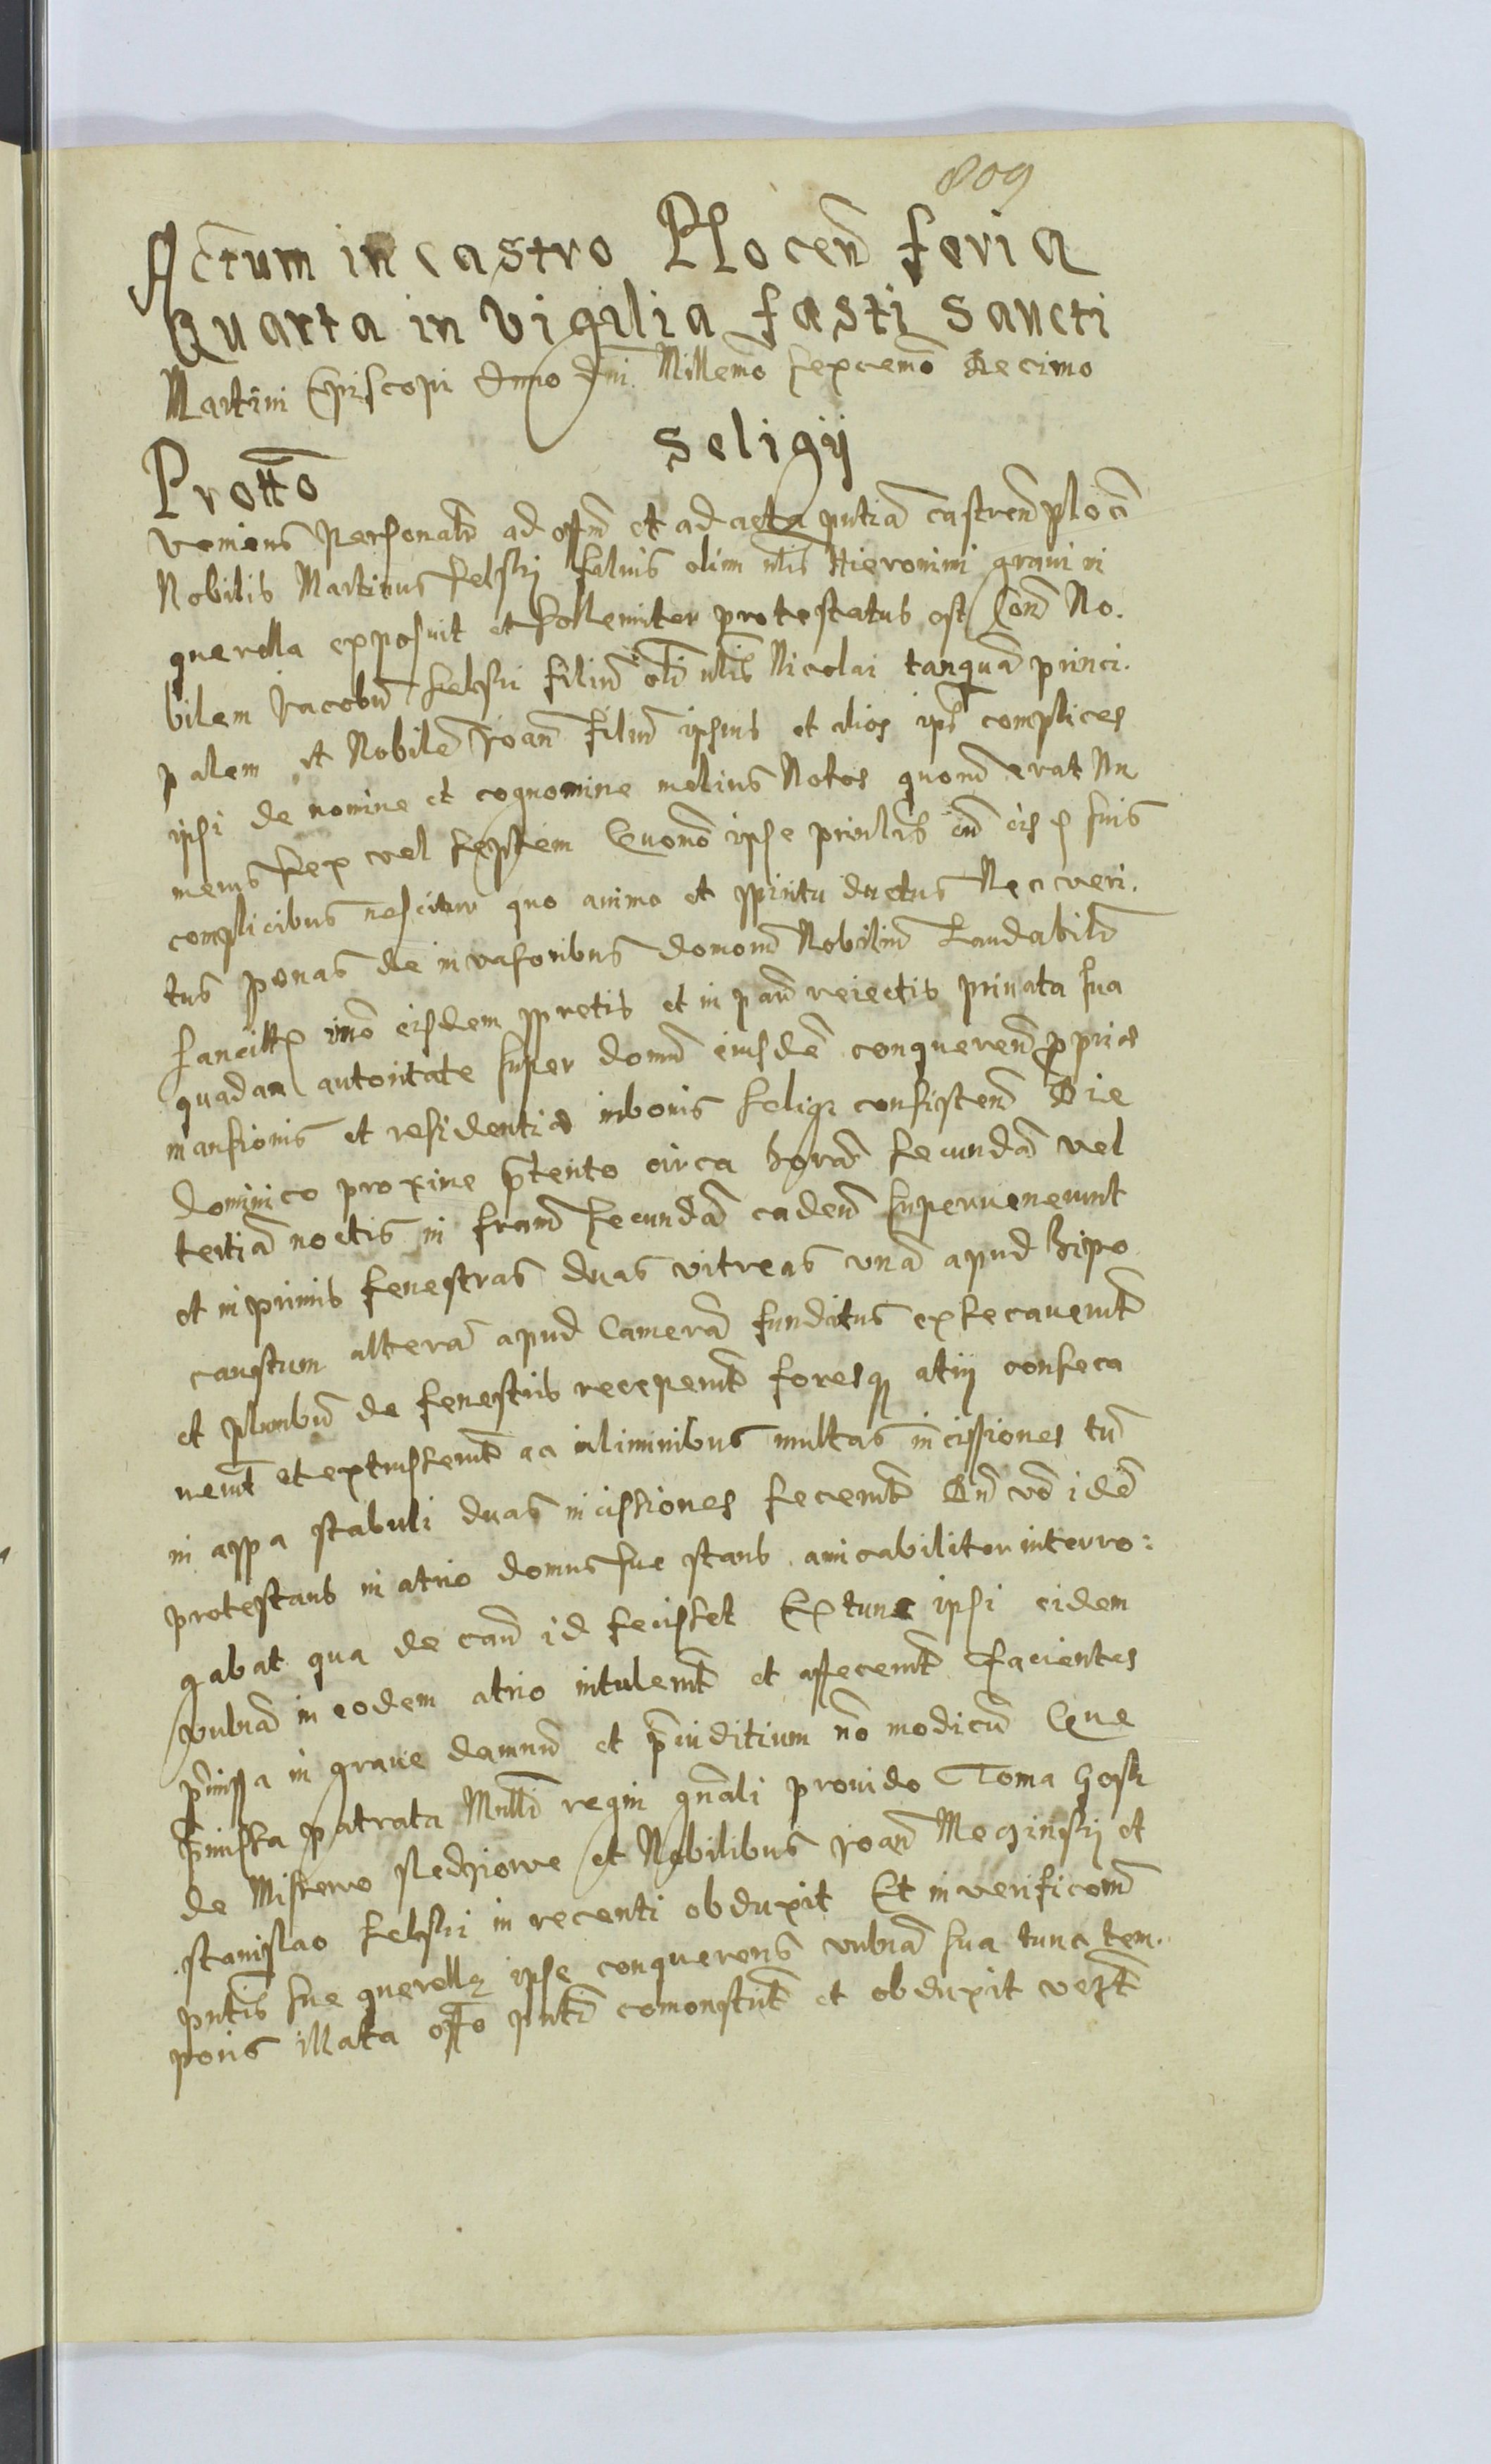 809
Actum in Castro Plocen feria
Quarta in Vigilia fasti Sancti
Martini Episcopi Anno Dni Millemo Sexcemo Decimo
Seligij
Prottō
veniens Personalr ad offm et ad acta pntia castren ploc
Nobilis Martinus Selski filius olim nlis Hieronimi graui in
querella exposuit et sollemniter protestatus est Con No.
bilem Jacobu Selski filiu oli nlis Nicolai tanqua princi.
palem et Nobile Joan filiu ipsius et alios ips complices
ipsi de nomine et cognomine melius Notos quoru erat Nu
merus sex vel septem Quomo ipse prinlis cu eis suis
complicibus nescitur quo animo et spiritu ductus Nec veri.
tus penas de inuasoribus domoru Nobiliu Laudabilr
sancitas imo eisdem spretis et in par reiectis priuata sua
quadam autoritate super domu eiusde conqueren pprias
mansionis et residentias in bonis Selig consisten Die
Dominico proxime pterito circa hora secunda vel
tertia noctis in fram secunda caden superuenerunt
et in primis fenestras duas vitreas vna apud hipo
caustum altera apud Camera funditus exsecauerut
et plumbu de fenestris receperut foresq atrij conseca
uerut et extrusserut ac in liminibus multas incissiones tu
in appa stabuli duas incissiones fecerut Dn vo ide
protestans in atrio domus sue stans amicabiliter interro:
gabat qua de cau id fecisset Extunc ipsi eidem
vulnera in eodem atrio intulerut et affecerut Facientes
pmissa in graue damnu et piuditium no modicu Que
pmissa patrata Mnlli regni gnali prouido Toma Gosk
de Miszewo Nedziowe et Nobilibus Joan Meginski et
Stanislao Selski in recenti obduxit Et in verificom
pntis sue querellę ipse conquerens vulnera sua tunc tem.
poris illata offo pnti comonstrut et obduxit vezt